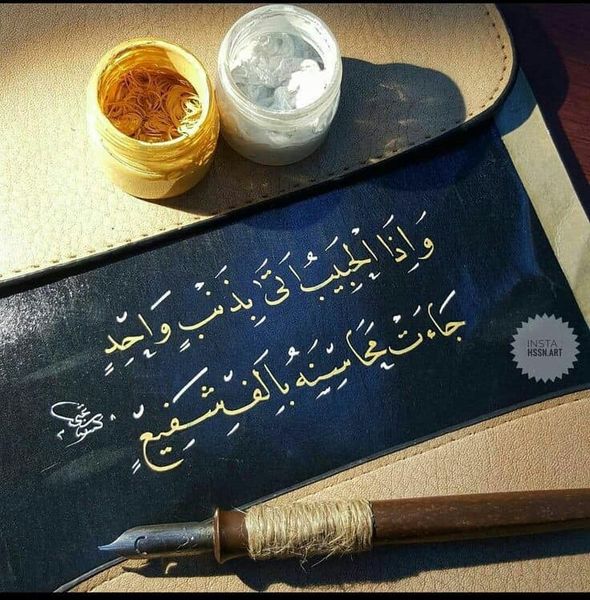 وَإِذَا الْحَبِيبُ اَتَىٰ بِذَنْبٍ وَاحِدٍ
جَاءَتْ مَحَاسِنُهُ بِاَلْفِ شَفِيعٍ
INSTA
HSSN.ART